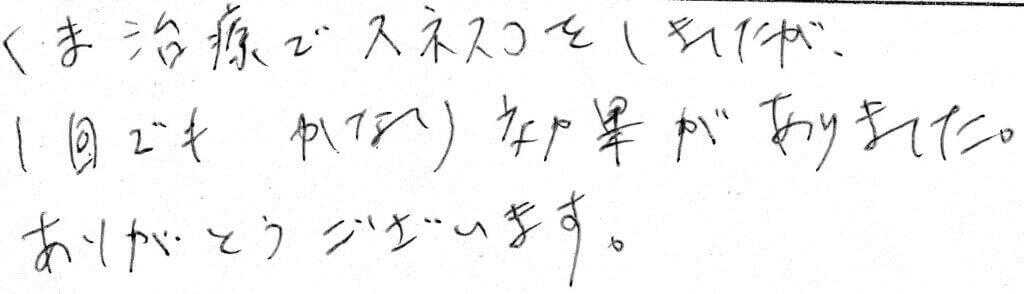 くま治療でスネコスをしましたが、
1回でも かなり効果がありました。
ありがとうございます。